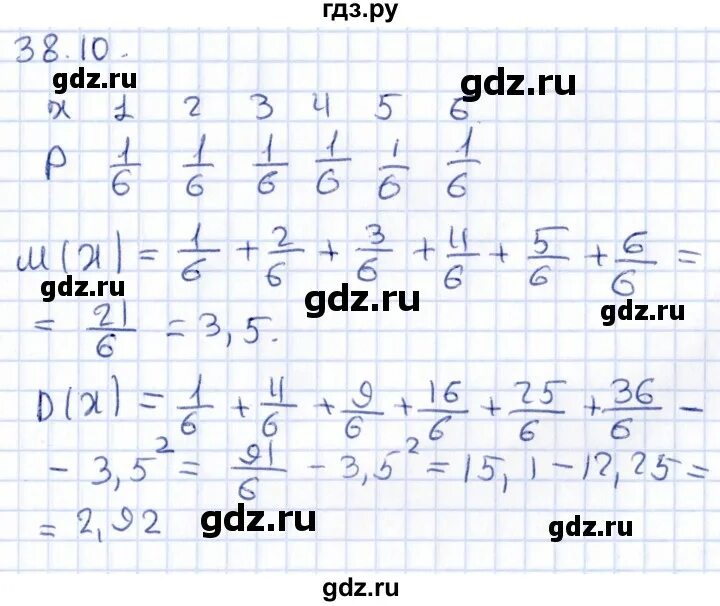 гдз.ру
38.10.
gdz.ru gdz.ru
x 1 2 3 4 5 6
P 1/6 1/6 1/6 1/6 1/6 1/6
M(x) = 1/6 + 2/6 + 3/6 + 4/6 + 5/6 + 6/6 =
gdz.ru gdz.ru gdz.ru
= 21/6 = 3,5.
D(x) = 1/6 + 4/6 + 9/6 + 16/6 + 25/6 + 36/6 -
- 3,5² = 91/6 - 3,5² = 15,1 - 12,25 =
= 2,92
gdz.ru gdz.ru
gdz.ru